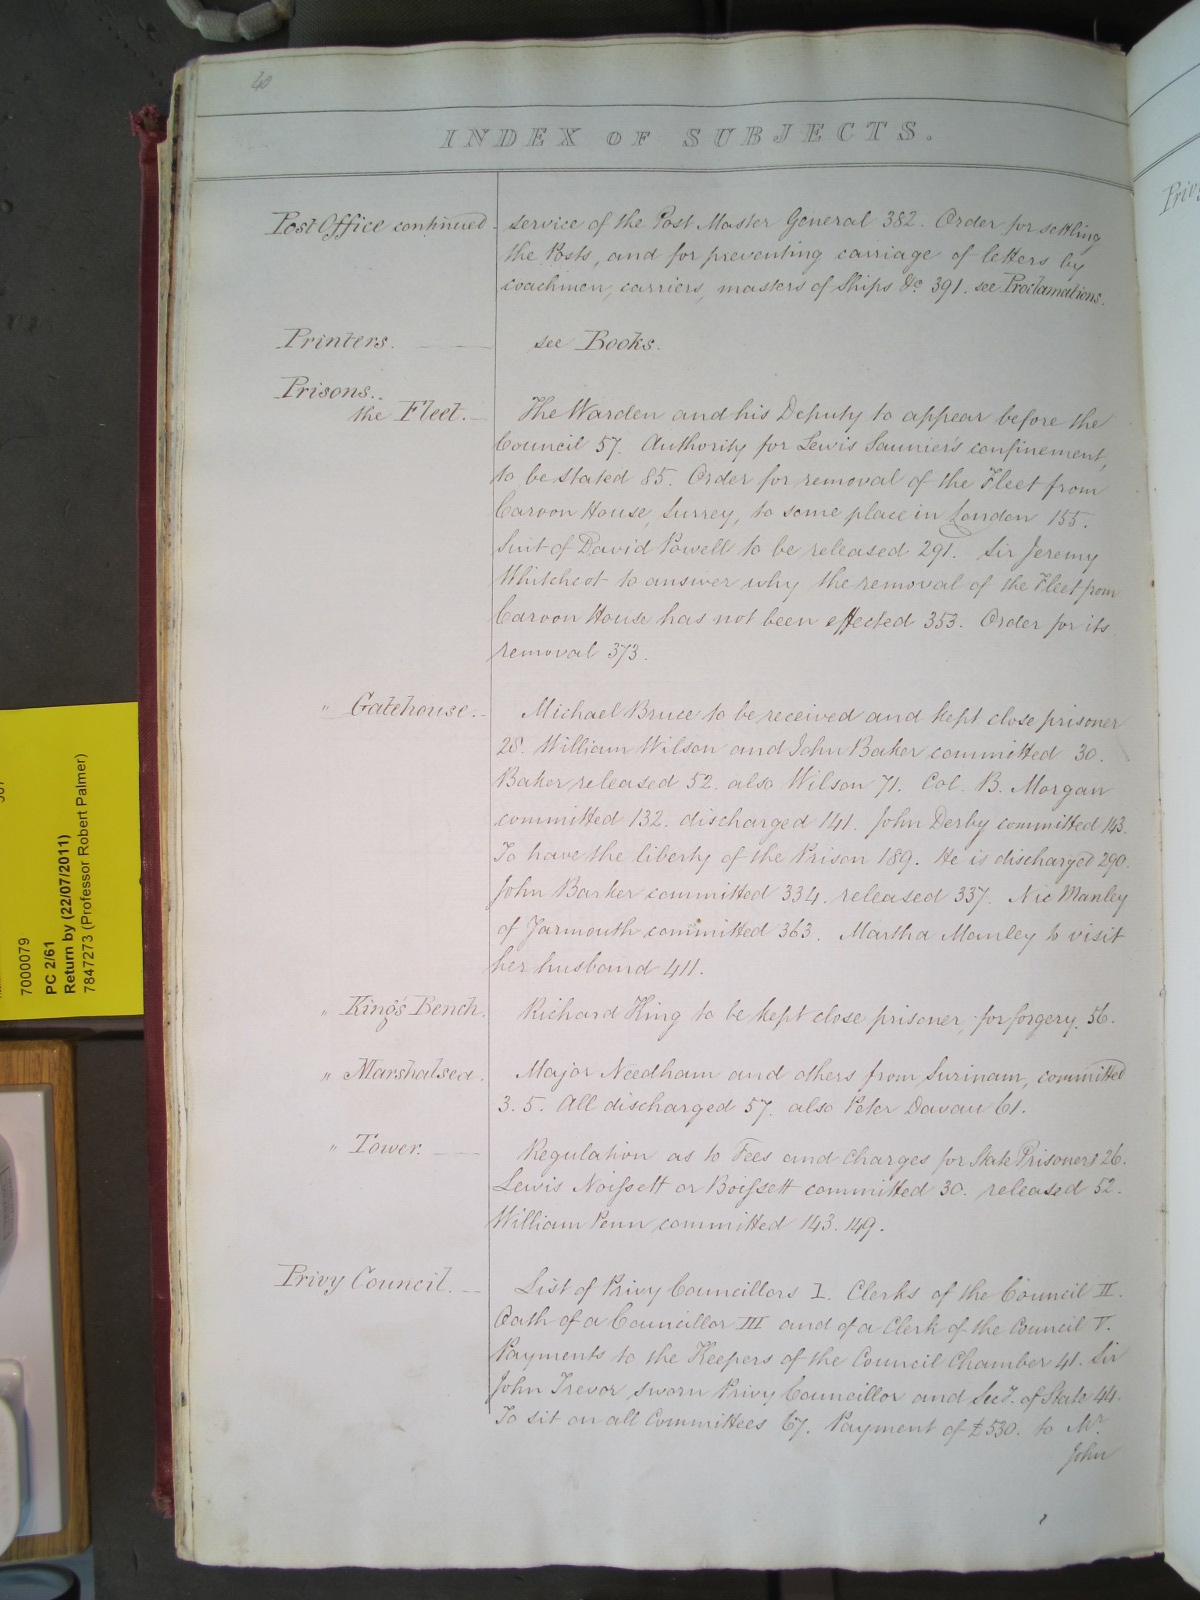 40
INDEX OF SUBJECTS.
Post Office continued. service of the Post Master General 382. Order for settling
the Posts, and for preventing carriage of letters by
coachmen, carriers, masters of Ships &c 391. see Proclamations.
Printers. see Books.
Prisons..
the Fleet. The Warden and his Deputy to appear before the
Council 57. Authority for Lewis Saunier's confinement,
to be stated 85. Order for removal of the Fleet from
Caroon House, Surrey, to some place in London 155.
Suit of David Powell to be released 291. Sir Jeremy
Whitchcot to answer why the removal of the Fleet from
Caroon House has not been effected 353. Order for its
removal 373.
" Gatehouse. Michael Bruce to be received and kept close prisoner
28. William Wilson and John Baker committed 30.
Baker released 52. also Wilson 71. Col. B. Morgan
committed 132. discharged 141. John Derby committed 143.
To have the liberty of the Prison 189. He is discharged 290.
John Barker committed 334. released 337. Nic Manley
of Yarmouth committed 363. Martha Manley to visit
her husband 411.
" King's Bench. Richard King to be kept close prisoner, for forgery. 56.
" Marshalsea. Major Needham and others from Surinam, committed
3. 5. All discharged 57. also Peter Davau 61.
" Tower. Regulation as to Fees and Charges for State Prisoners 26.
Lewis Noissett or Boissett committed 30. released 52.
William Penn committed 143. 149.
Privy Council. List of Privy Councillors I. Clerks of the Council II.
Oath of a Councillor III and of a Clerk of the Council V.
Payments to the Keepers of the Council Chamber 41. Sir
John Trevor sworn Privy Councillor and Secy. of State 44.
To sit on all Committees 67. Payment of £530. to Mr.
John
7000079
PC 2/61
Return by (22/07/2011)
7847273 (Professor Robert Palmer)